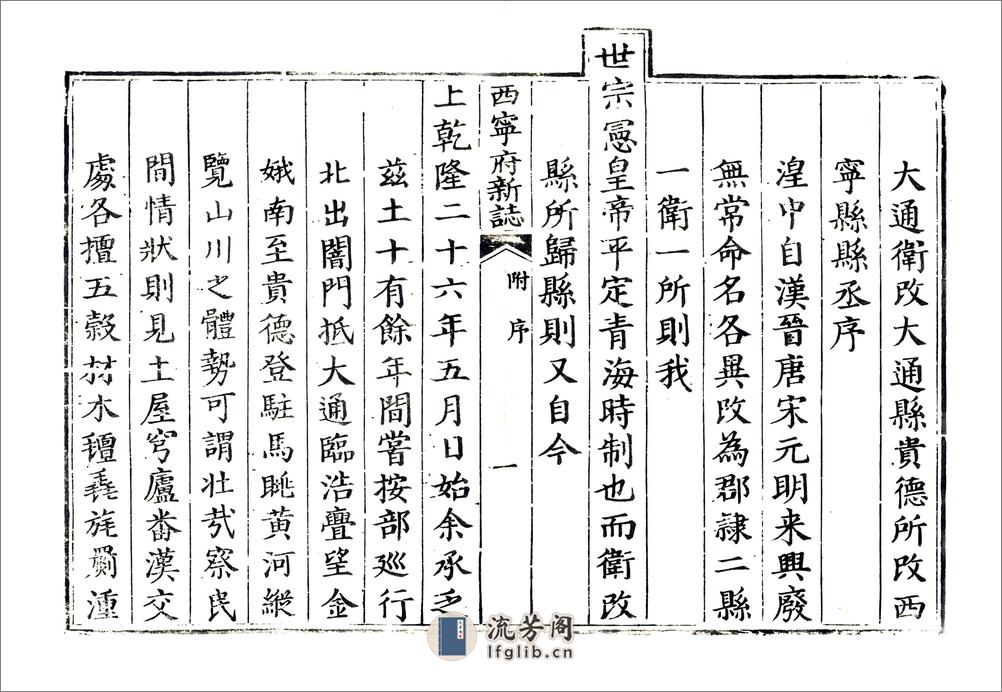 大通衛改大通縣貴德所改西
寧縣縣丞序
湟中自漢晉唐宋元明来興廢
無常命名各異改為郡隷二縣
一衛一所則我
世宗憲皇帝平定青海時制也而衛改
縣所歸縣則又自今
西寧府新誌 附序 一
上乾隆二十六年五月日始余承乏
茲土十有餘年間嘗按部廵行
北出闇門抵大通臨浩亹望金
娥南至貴德登駐馬眺黄河縱
覽山川之體勢可謂壮㢤察民
間情狀則見土屋穹廬畨漢交
處各擅五穀材木氊毳旄罽湩
流芳阁
lfglib.cn